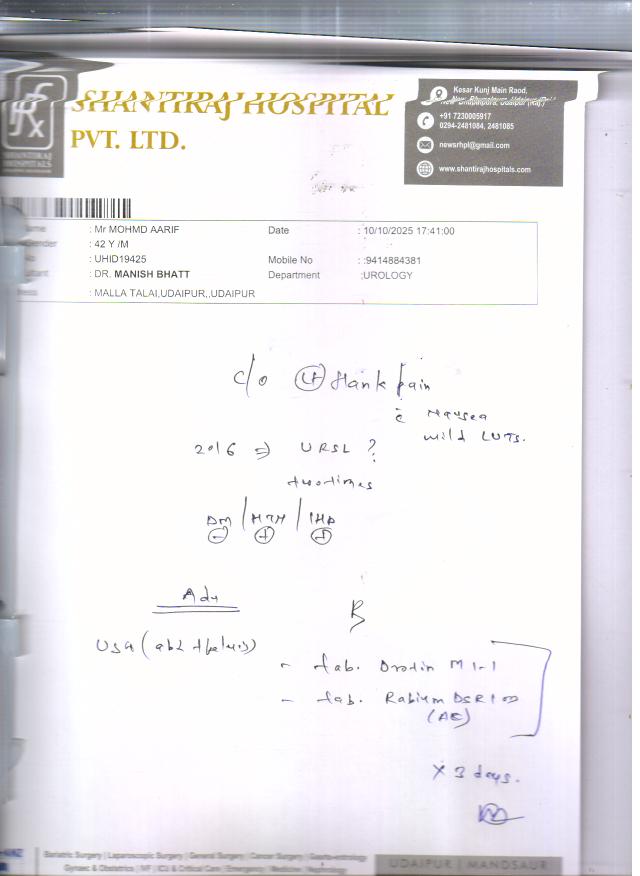 SHANTIRAJ HOSPITAL
PVT. LTD.
Kesar Kunj Main Raod,
New Bhupalpura, Udaipur (Raj.)
+91 7230005917
0294-2481084, 2481085
newsrhpl@gmail.com
www.shantirajhospitals.com
SHANTIRAJ
HOSPITALS
: Mr MOHMD AARIF Date : 10/10/2025 17:41:00
: 42 Y /M
: UHID19425 Mobile No : :9414884381
: DR. MANISH BHATT Department :UROLOGY
: MALLA TALAI,UDAIPUR,,UDAIPUR
c/o Lt flank pain
c̄ Nausea
mild LUTS.
2016 ⇒ URSL ?
two times
DM / HTN / IHD
- + +
Adv R
USG (abd + pelvis)
- tab. Drotin M 1-1
- tab. Rabium DSR 1 OD
(AC)
x 3 days.
Bariatric Surgery | Laparoscopic Surgery | General Surgery | Cancer Surgery | Gastro-entrology
Gynaec & Obstetrics | IVF | ICU & Critical Care | Emergency | Medicine | Nephrology
UDAIPUR | MANDSAUR